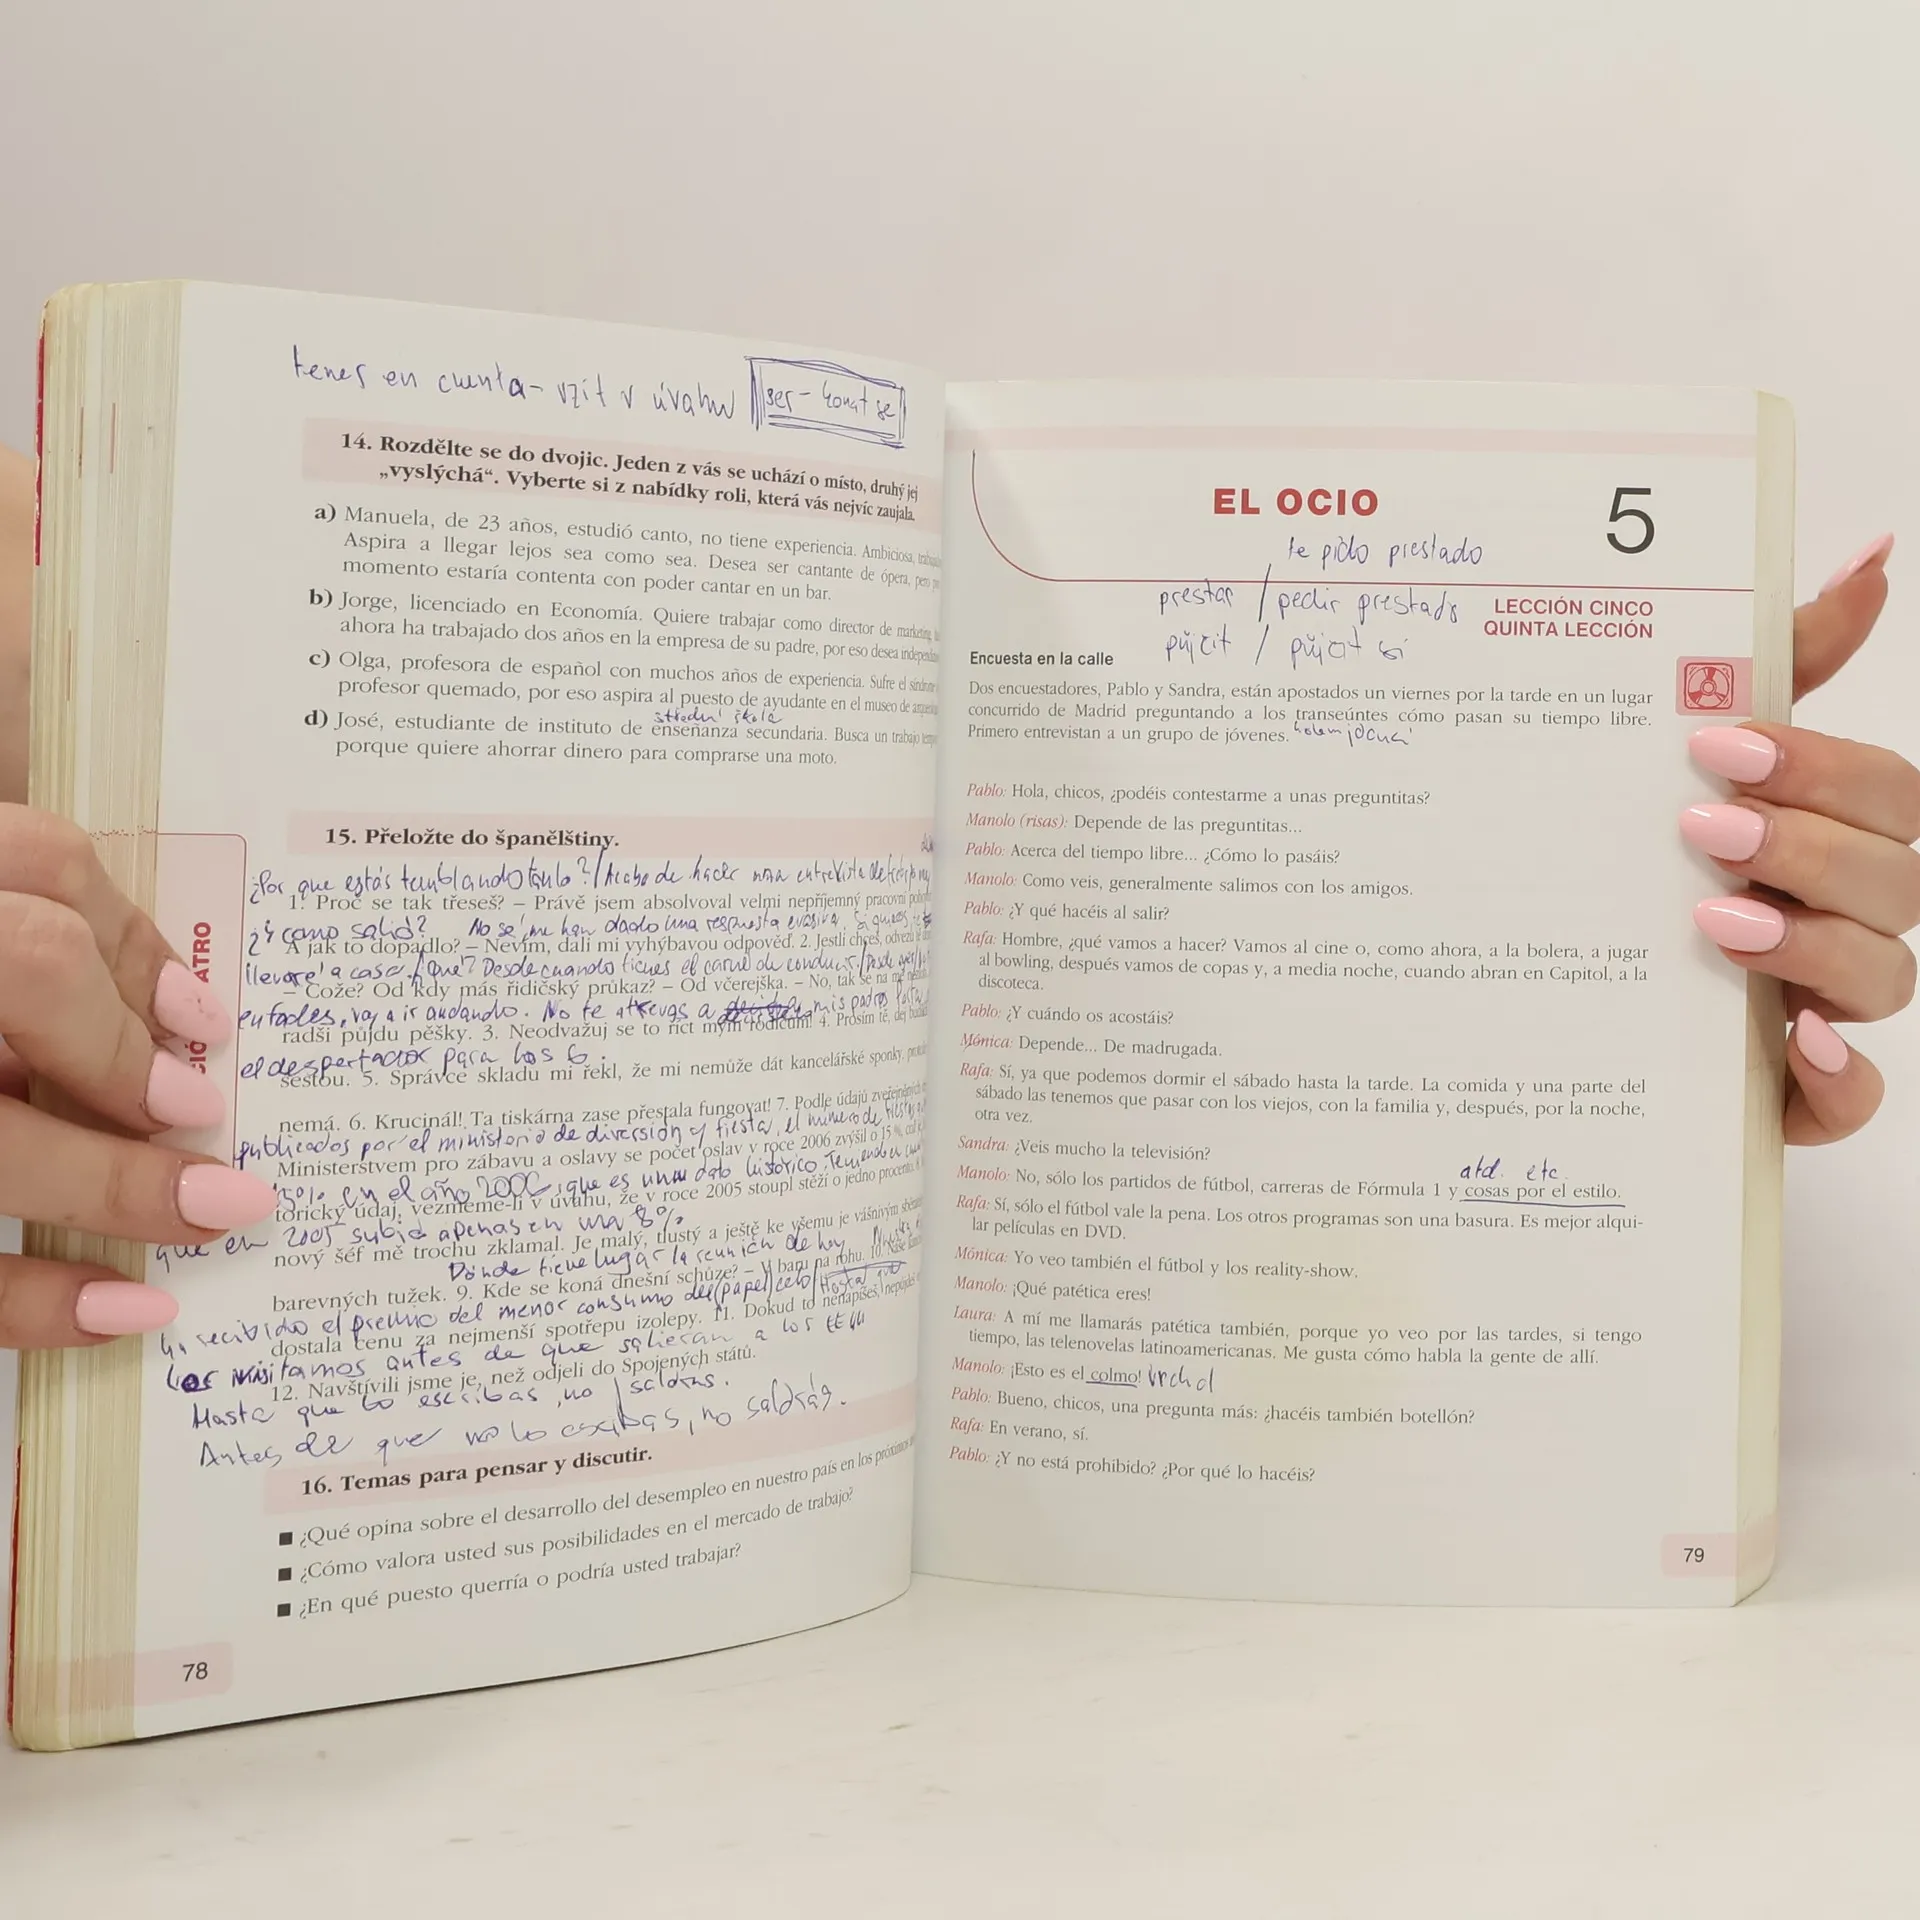 tener en cuenta – vzít v úvahu ser – konat se
14. Rozdělte se do dvojic. Jeden z vás se uchází o místo, druhý jej
„vyslýchá“. Vyberte si z nabídky roli, která vás nejvíc zaujala.
a) Manuela, de 23 años, estudió canto, no tiene experiencia. Ambiciosa,
Aspira a llegar lejos sea como sea. Desea ser cantante de ópera, pero
momento estaría contenta con poder cantar en un bar.
b) Jorge, licenciado en Economía. Quiere trabajar como director de marketing,
ahora ha trabajado dos años en la empresa de su padre, por eso desea
c) Olga, profesora de español con muchos años de experiencia. Sufre el
profesor quemado, por eso aspira al puesto de ayudante en el museo de
střední škola
d) José, estudiante de instituto de enseñanza secundaria. Busca un trabajo
porque quiere ahorrar dinero para comprarse una moto.
15. Přeložte do španělštiny.
¿Por que estás temblando tanto? / Acabo de hacer una entrevista de
1. Proč se tak třeseš? – Právě jsem absolvoval velmi nepříjemný pracovní
¿Y como salió? No sé, me han dado una respuesta evasiva. Si quieres, te
A jak to dopadlo? – Nevím, dali mi vyhýbavou odpověď. 2. Jestli chceš, odvezu tě
llevaré a casa. ¿Qué? Desde cuando tienes el carné de conducir. / Desde ayer /
– Cože? Od kdy máš řidičský průkaz? – Od včerejška. – No, tak se na mě
enfades, voy a ir andando. No te atrevas a mis padres
radši půjdu pěšky. 3. Neodvažuj se to říct mým rodičům! 4. Prosím tě, dej
el despertador para las 6.
šestou. 5. Správce skladu mi řekl, že mi nemůže dát kancelářské sponky,
nemá. 6. Krucinál! Ta tiskárna zase přestala fungovat! 7. Podle údajů zveřejněných
publicados por el ministerio de diversión y fiesta, el número de fiestas
Ministerstvem pro zábavu a oslavy se počet oslav v roce 2006 zvýšil o 15 %, což je
15% en el año 2006, que es un dato histórico. Teniendo en
torický údaj, vezmeme-li v úvahu, že v roce 2005 stoupl stěží o jedno procento. 8.
que en 2005 subió apenas en una 8%
nový šéf mě trochu zklamal. Je malý, tlustý a ještě ke všemu je vášnivým
Dónde tiene lugar la reunión de hoy
barevných tužek. 9. Kde se koná dnešní schůze? – V baru na rohu. 10. Naše
ha recibido el premio del menor consumo del (papel) celo / Hasta que
dostala cenu za nejmenší spotřebu izolepy. 11. Dokud to nenapíšeš,
Los visitamos antes de que salieran a los EEUU
12. Navštívili jsme je, než odjeli do Spojených států.
Hasta que lo escribas, no saldrás.
Antes de que no lo escribas, no saldrás.
16. Temas para pensar y discutir.
■ ¿Qué opina sobre el desarrollo del desempleo en nuestro país en los próximos
■ ¿Cómo valora usted sus posibilidades en el mercado de trabajo?
■ ¿En qué puesto querría o podría usted trabajar?
78
ATRO
EL OCIO 5
te pido prestado
prestar / pedir prestado
půjčit / půjčit si
LECCIÓN CINCO
QUINTA LECCIÓN
Encuesta en la calle
Dos encuestadores, Pablo y Sandra, están apostados un viernes por la tarde en un lugar
concurrido de Madrid preguntando a los transeúntes cómo pasan su tiempo libre.
Primero entrevistan a un grupo de jóvenes. kolemjdoucí
Pablo: Hola, chicos, ¿podéis contestarme a unas preguntitas?
Manolo (risas): Depende de las preguntitas...
Pablo: Acerca del tiempo libre... ¿Cómo lo pasáis?
Manolo: Como veis, generalmente salimos con los amigos.
Pablo: ¿Y qué hacéis al salir?
Rafa: Hombre, ¿qué vamos a hacer? Vamos al cine o, como ahora, a la bolera, a jugar
al bowling, después vamos de copas y, a media noche, cuando abran en Capitol, a la
discoteca.
Pablo: ¿Y cuándo os acostáis?
Mónica: Depende... De madrugada.
Rafa: Sí, ya que podemos dormir el sábado hasta la tarde. La comida y una parte del
sábado las tenemos que pasar con los viejos, con la familia y, después, por la noche,
otra vez.
Sandra: ¿Veis mucho la televisión?
atd. etc.
Manolo: No, sólo los partidos de fútbol, carreras de Fórmula 1 y cosas por el estilo.
Rafa: Sí, sólo el fútbol vale la pena. Los otros programas son una basura. Es mejor alqui-
lar películas en DVD.
Mónica: Yo veo también el fútbol y los reality-show.
Manolo: ¡Qué patética eres!
Laura: A mí me llamarás patética también, porque yo veo por las tardes, si tengo
tiempo, las telenovelas latinoamericanas. Me gusta cómo habla la gente de allí.
Manolo: ¡Esto es el colmo! vrchol
Pablo: Bueno, chicos, una pregunta más: ¿hacéis también botellón?
Rafa: En verano, sí.
Pablo: ¿Y no está prohibido? ¿Por qué lo hacéis?
79